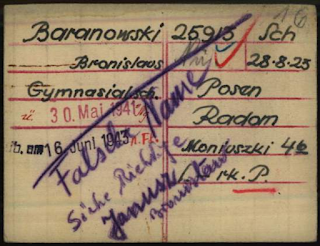 16
Baranowski 25915 Sch
Bronislaus 28-8-25
Gymnasialsch. Posen
ü 30. Mai 1941 Radom
üb. am 16. Juni 1943 n. Fl. Moniuszki 46
rk. P.
Falscher Name
Siehe Richtige
Janusz
Bronislaw